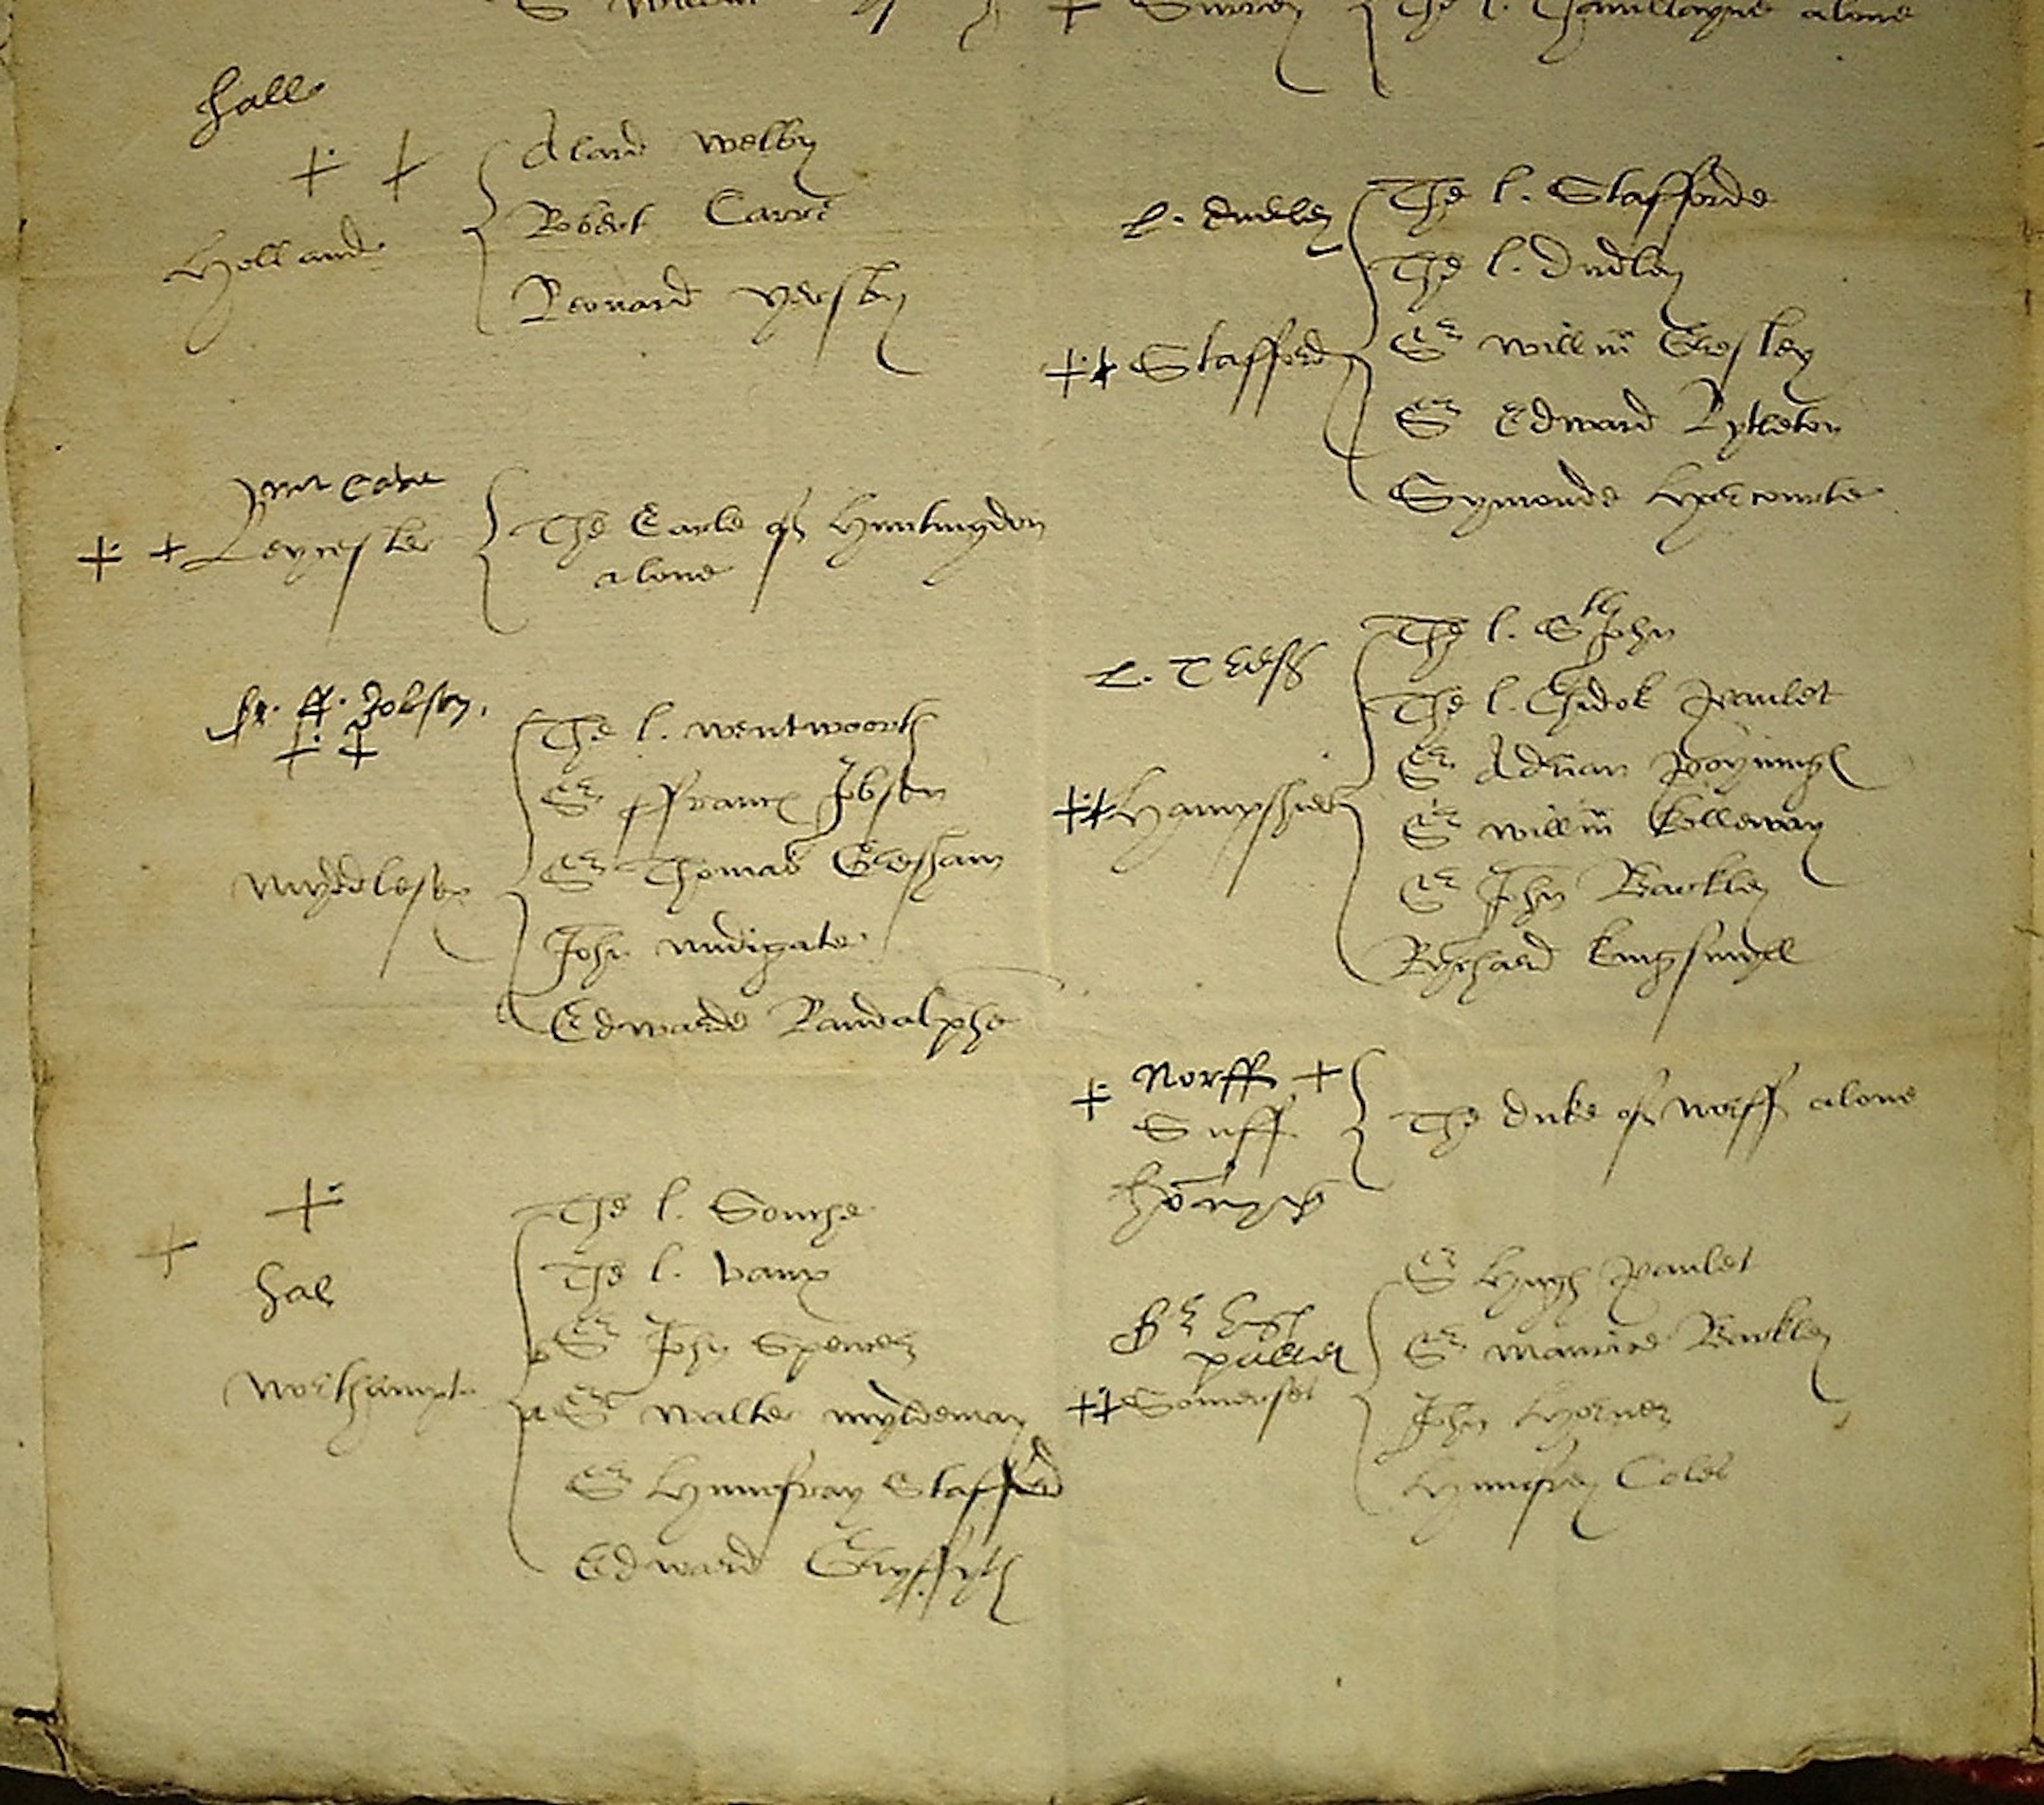 + Surrey The l. Chamb[er]layne alone
hall
+ +
Holland
Alard Welby
Robert Carre
Leonard Yersby
Leycester
The Earle of Huntingdon
alone
Sr. ff. Jobson.
+ +
Myddlesex
The l. Wentwoorth
Sr ffrancs Jobson
Sr Thomas Gresham
John Nudigate
Edwarde Randalphe
+
+
hal
Northampt
The l. Souche
The l. Vaux
Sr John Spencer
Sr Walter Myldemay
Sr Humfray Stafford
Edward Gryffyth
L. Dudley
++ Stafford
The l. Stafforde
The l. Dudley
Sr Willm Gresley
Sr Edward Lytleton
Symonde Harcourte
L.
++ Hampshier
The l. St John
The l. Chidok Paulet
Sr Adrian Poynings
Sr Willm Kelleway
Sr John Barkley
Rychard Kingsmyll
+ Norff +
Suff
The Duke of Norff alone
Sr Hugh
pallet
++ Somerset
Sr Hugh Paulet
Sr Maurice Barkley
John Horner
Humfrey Coles